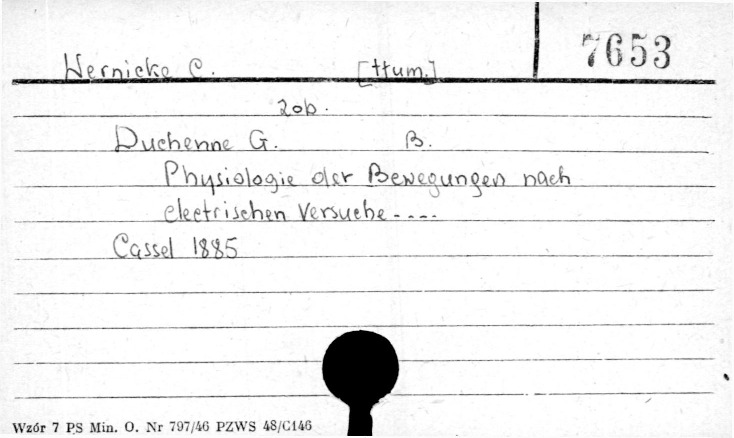 Wernicke C. [tłum.] 7653
zob.
Duchenne G. B.
Physiologie der Bewegungen nach
electrischen Versuche ----
Cassel 1885
Wzór 7 PS Min. O. Nr 797/46 PZWS 48/C146